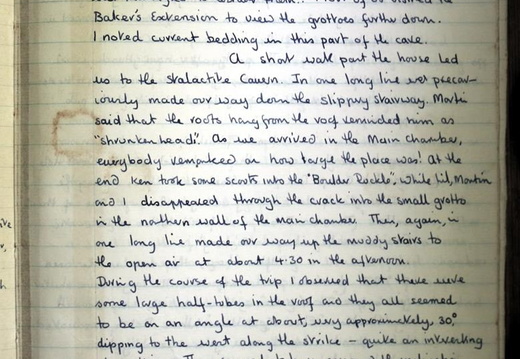 Baker's Exkension to view the grottoes further down.
I noted current bedding in this part of the cave.
A short walk past the house led
us to the stalactite Cavern. In one long line we precar-
iously made our way down the slippery stairway. Martin
said that the roots hang from the roof reminded him as
"shrunken heads". As we arrived in the Main Chamber,
everybody remarked on how large the place was! At the
end Ken took some scouts into the "Boulder Rockle", while Lil, Martin
and I disappeared through the crack into the small grotto
in the northern wall of the main chamber. Then, again, in
one long line made our way up the muddy stairs to
the open air at about 4.30 in the afternoon.
During the course of the trip I observed that there were
some large half-tubes in the roof and they all seemed
to be on an angle at about, very approximately, 30°
dipping to the west along the strike - quite an interesting